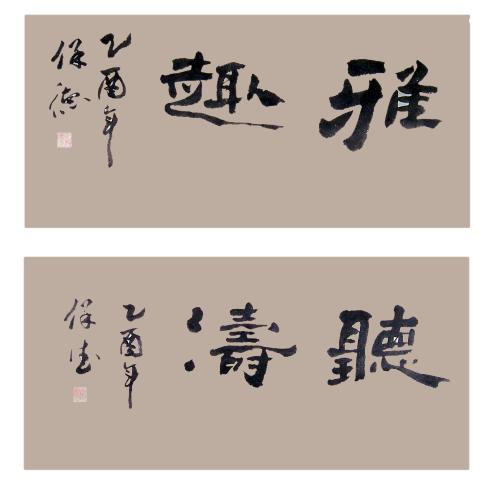 雅趣
乙酉年
保德
聽濤
乙酉年
保德